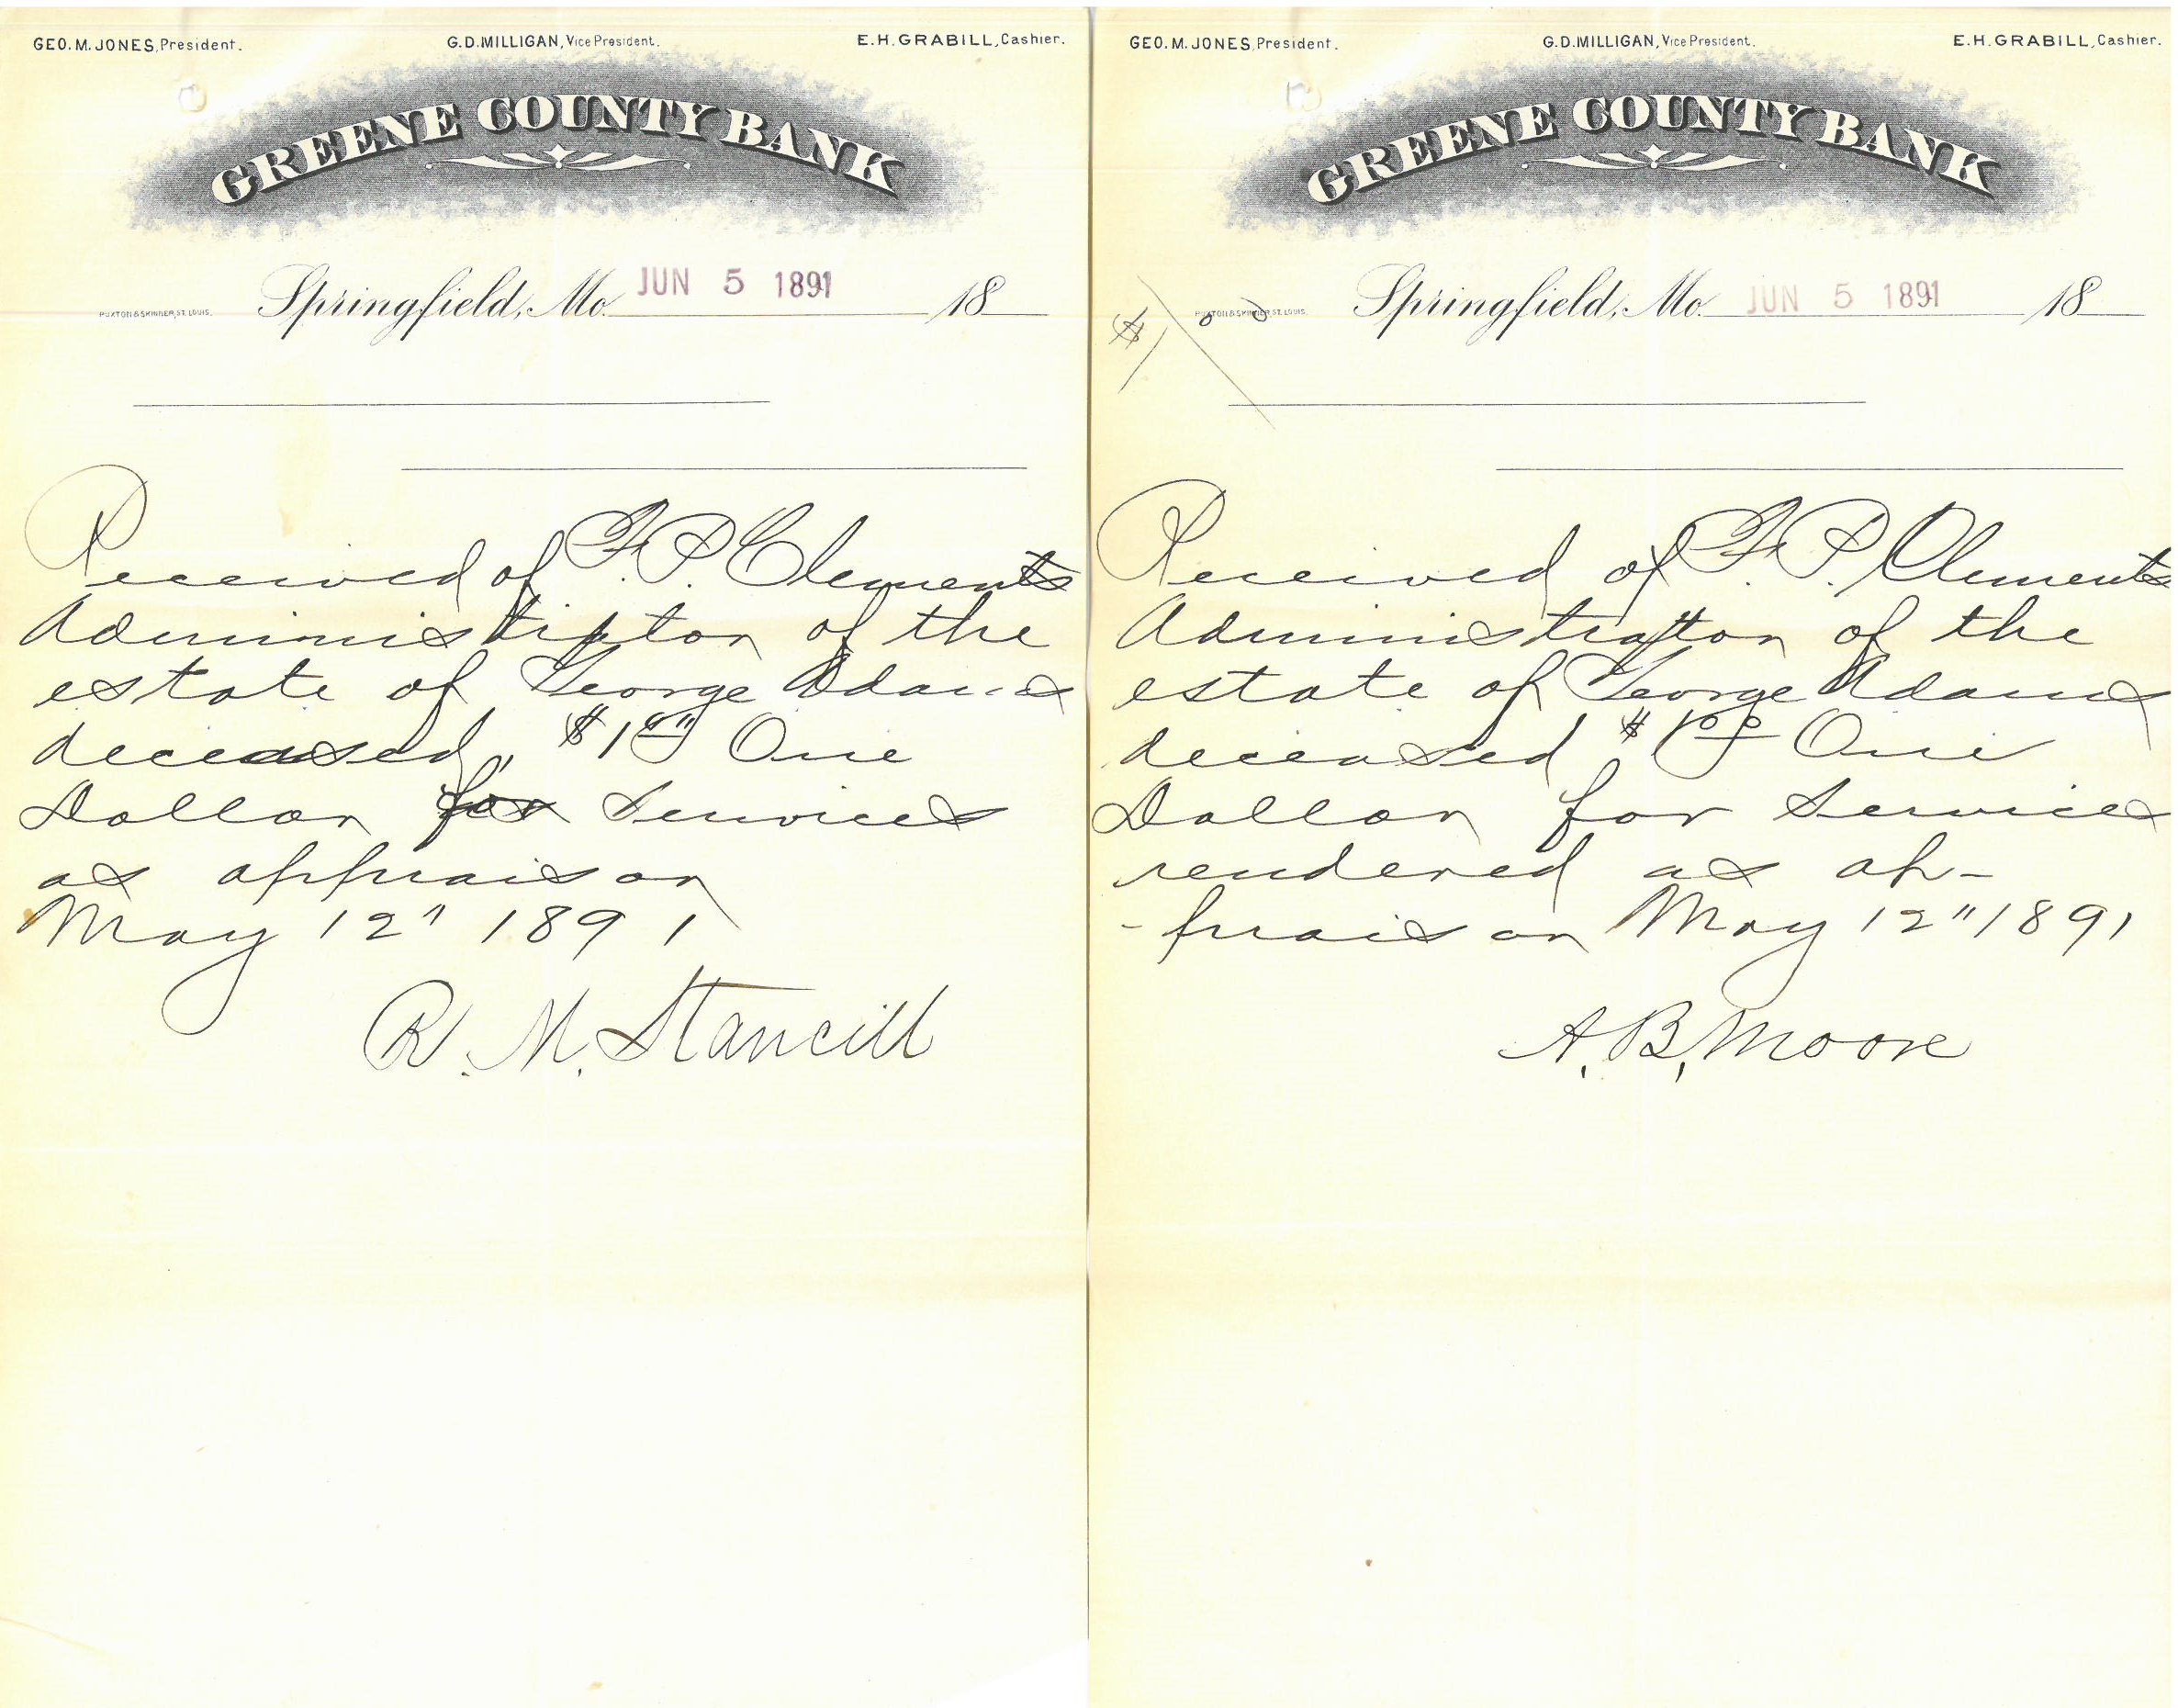 GEO. M. JONES, President. G.D. MILLIGAN, Vice President. E.H. GRABILL, Cashier.
GREENE COUNTY BANK
PUXTON & SKINNER, ST. LOUIS. Springfield, Mo. JUN 5 1891 18
Received of F. P. Clements
Administrator of the
estate of George Adams
deceased, $1.00 One
Dollar for services
as appraisor
May 12" 1891
R. M. Stancill
GEO. M. JONES, President. G.D. MILLIGAN, Vice President. E.H. GRABILL, Cashier.
GREENE COUNTY BANK
PUXTON & SKINNER, ST. LOUIS. Springfield, Mo. JUN 5 1891 18
Received of F. P. Clements
Administrator of the
estate of George Adams
deceased $1.00 One
Dollar for services
rendered as ap-
-praisor May 12" 1891
A. B. Moore